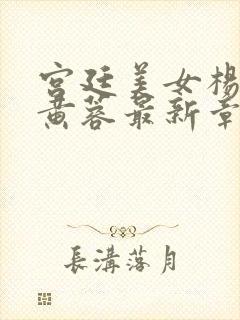 宫廷美女杨
黄蓉最新章
長溝落月